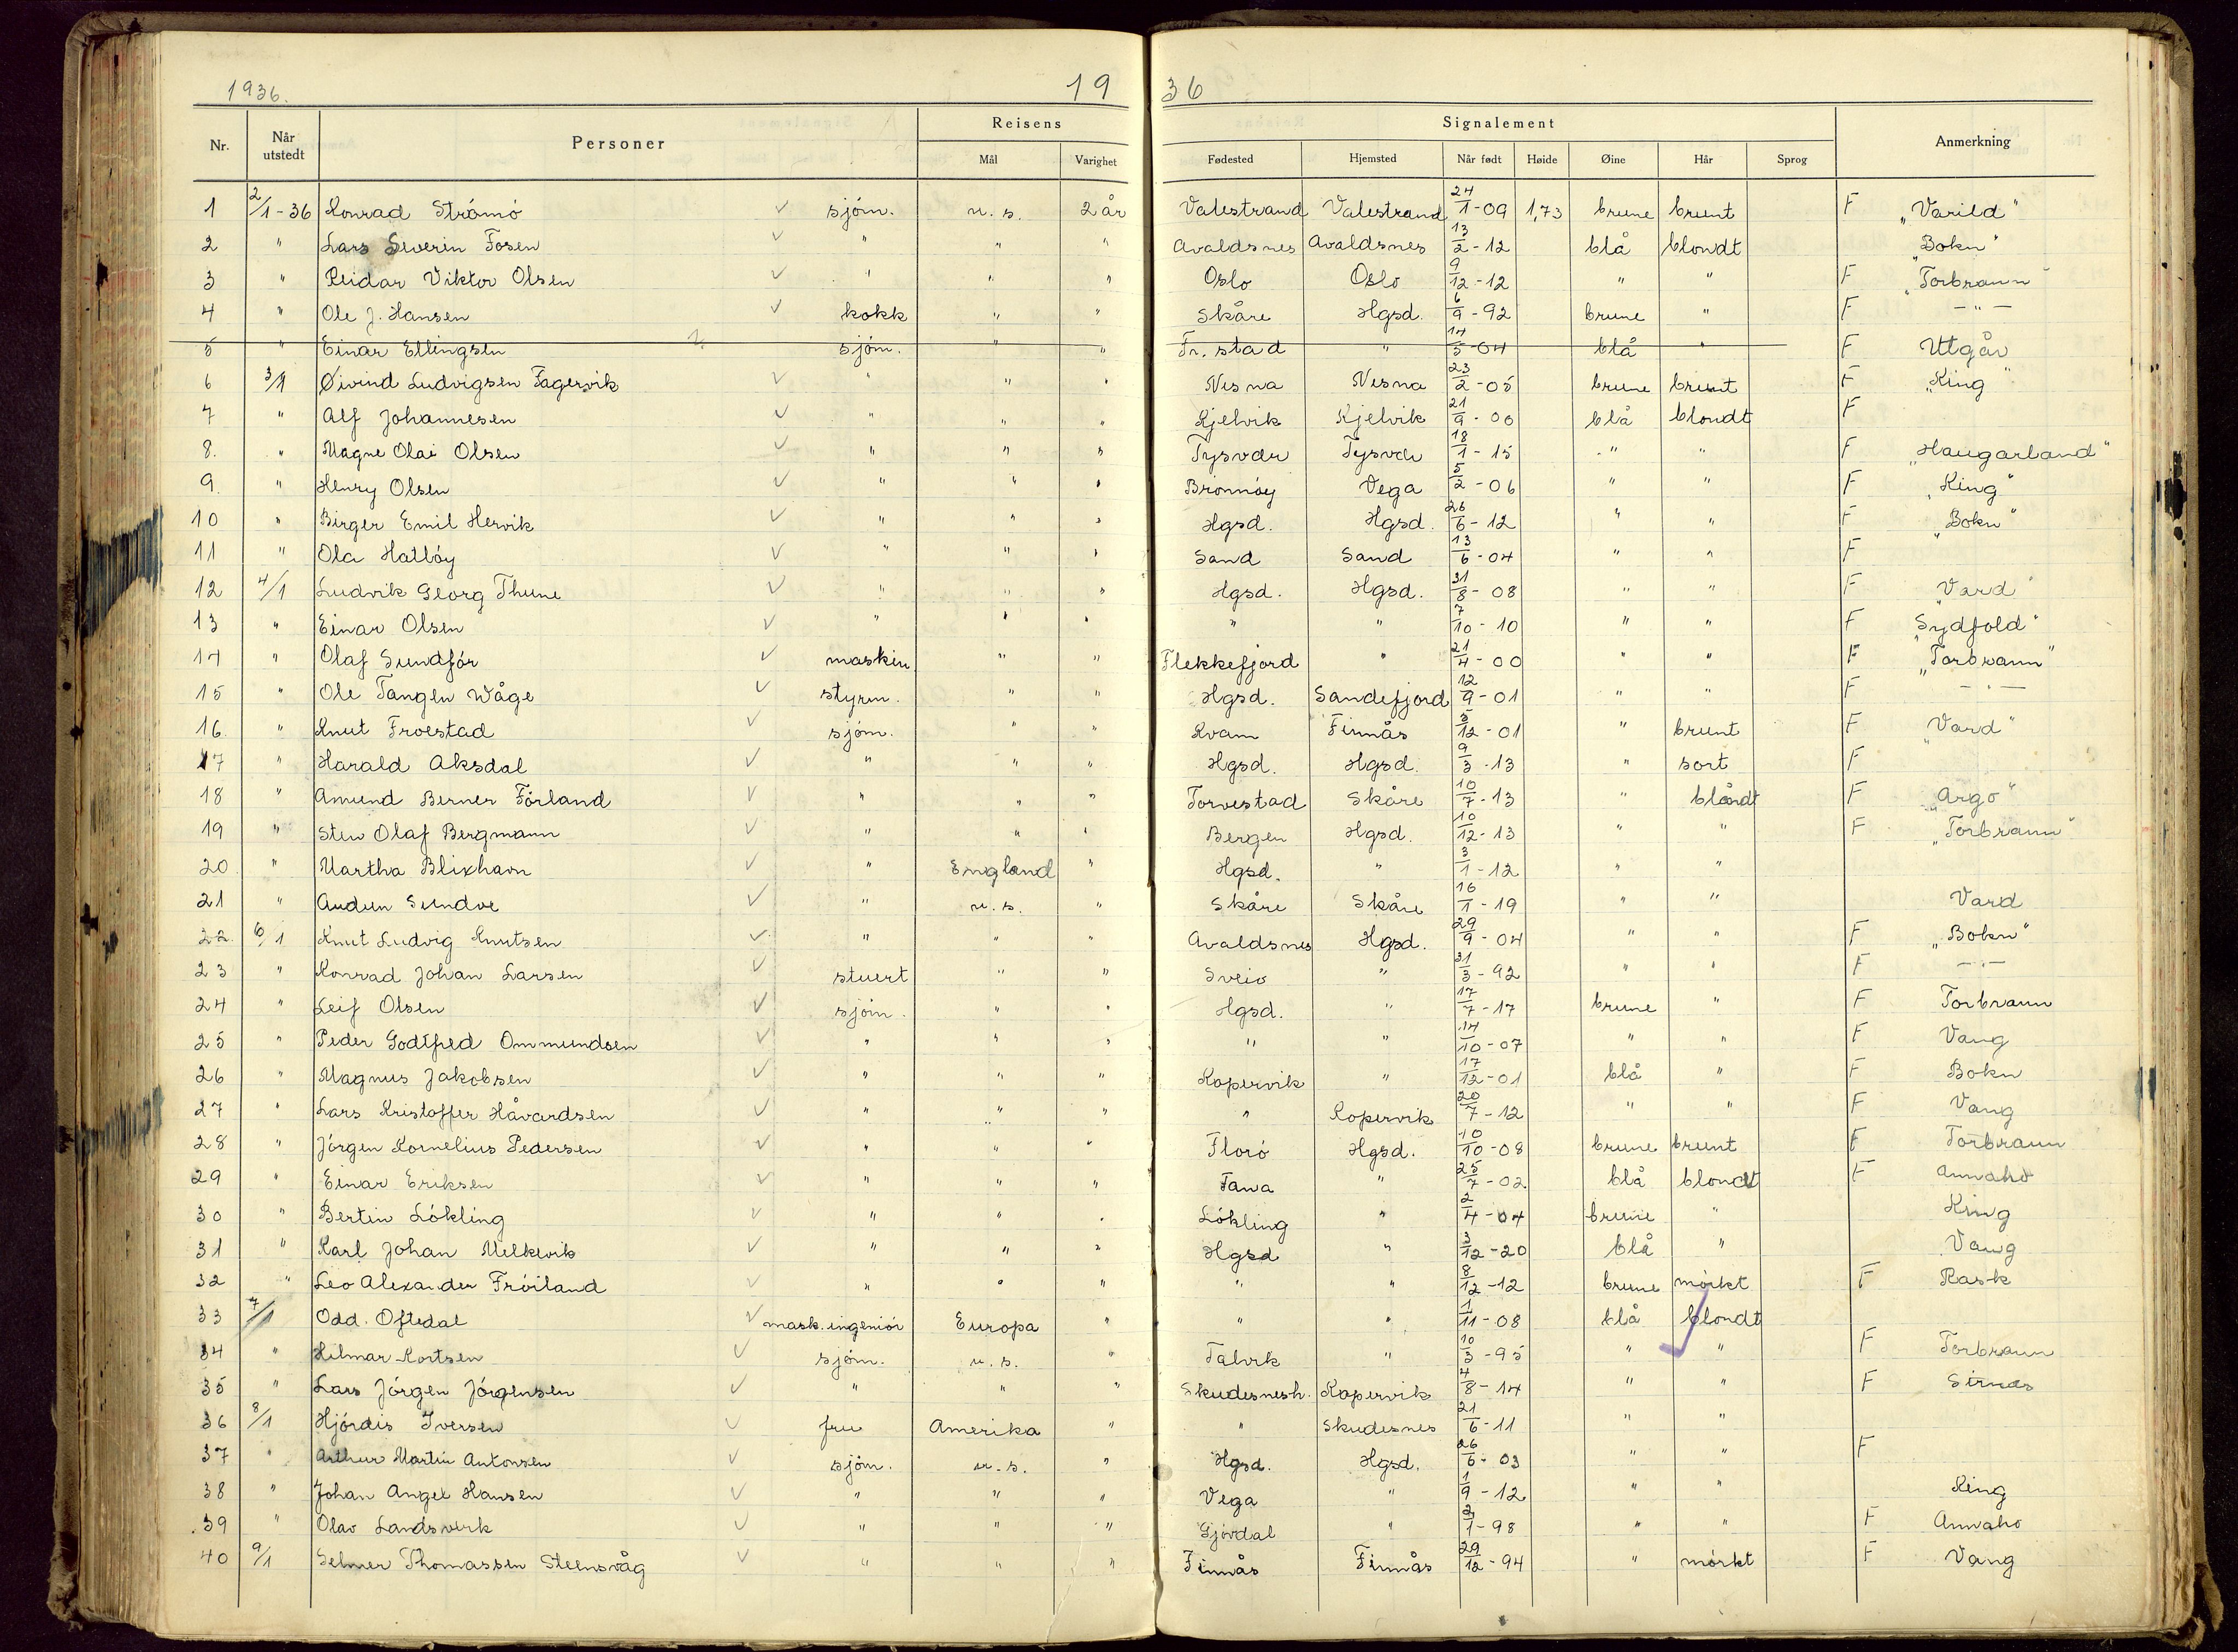 1936. 19 36
Nr. Når utstedt Personer Reisens Mål Varighet Signalement Fødested Hjemsted Når født Høide Øine Hår Sprog Anmerkning
1 2/1-36 Konrad Strømø sjøm. u. s. 2 år Valestrand Valestrand 24/1-09 1,73 brune brunt F „Varild"
2 " Lars Severin Fosen " " " Avaldsnes Avaldsnes 13/2-12 blå blondt „Bokn"
3 " Reidar Viktor Olsen " " " Oslo Oslo 9/12-12 " " F „Torbrann"
4 " Ole J. Hansen kokk " " Skåre Hgsd. 6/9-92 brune " F -"-
5 " Einar Ellingsen sjøm. " " Fr.stad " 14/5-04 blå " F Utgår
6 3/1 Øivind Ludvigsen Fagervik " " " Nesna Nesna 23/2-05 brune brunt F „King"
7 " Alf Johannesen " " " Kjelvik Kjelvik 21/9-00 blå blondt F
8. " Magne Olai Olsen " " " Tysvær Tysvær 18/1-15 " " F „Haugarland"
9. " Henry Olsen " " " Brønnøy Vega 5/2-06 " " F „King"
10 " Birger Emil Hervik " " " Hgsd. Hgsd. 26/6-12 " " F „Bokn"
11 " Ola Hatløy " " " Sand Sand 13/6-04 " " F
12 4/1 Ludvik Georg Thune " " " Hgsd. Hgsd. 31/8-08 " " F „Vard"
13 " Einar Olsen " " " " " 7/10-10 " " F „Sydfold"
14 " Olaf Sundför maskin. " " Flekkefjord " 21/4-00 " " F „Torbrann"
15 " Ole Tangen Wåge styrm. " " Hgsd. Sandefjord 12/9-01 " " F -"-
16. " Knut Froestad sjøm. " " Kvam Finnås 5/12-01 " brunt F „Vard"
17 " Harald Aksdal " " " Hgsd. Hgsd. 9/3-13 " sort F
18 " Amund Berner Førland " " " Torvestad Skåre 10/7-13 " blondt F „Argo"
19 " Sten Olaf Bergmann " " " Bergen Hgsd. 10/12-13 " " F „Torbrann"
20. " Martha Blixhavn " England " Hgsd. " 3/1-12 " "
21 " Audun Sundve " u. s. " Skåre Skåre 16/1-19 " " Vard
22. 6/1 Knut Ludvig Knutsen " " " Avaldsnes Hgsd. 29/9-04 " " F „Bokn"
23 " Konrad Johan Larsen stuert " " Sveio " 31/3-92 " " F -"-
24 " Leif Olsen sjøm. " " Hgsd. " 17/7-17 brune " F Torbrann
25 " Peder Godtfred Ommundsen " " " " " 14/10-07 " " F Vang
26 " Magnus Jakobsen " " " Kopervik " 17/12-01 blå " F Bokn
27 " Lars Kristoffer Håvardsen " " " " Kopervik 20/7-12 " " F Vang
28 " Jørgen Kornelius Pedersen " " " Florø Hgsd. 10/10-08 brune brunt F Torbrann
29 " Einar Eriksen " " " Tana " 25/7-02. blå blondt F Annaho
30 " Bertin Løkling " " " Løkling " 2/4-04 brune " King
31 " Karl Johan Melkevik " " " Hgsd " 3/12-20 blå " Vang
32 " Leo Alexander Frøiland " " " " " 8/12-12 brune mørkt F Rask
33 7/1 Odd. Oftedal mask.ingeniør Europa " " " 1/11-08 blå blondt
34 " Hilmar Kortsen sjøm. u. s. " Talvik " 10/3-95 " " F Torbrann
35 " Lars Jørgen Jørgensen " " " Skudesnesh. Kopervik 4/8-14 " " F Sirnes
36 8/1 Hjørdis Iversen fru Amerika " " Skudesnes 21/6-11 " "
37 " Arthur Martin Antonsen sjøm. u. s. " Hgsd. Hgsd. 26/6-03 " " F
38 " Johan Angel Hansen " " " Vega " 1/9-12 " " King
39 " Olav Landsverk " " " Gjövdal " 2/1-98 " " F Annaho
40 9/1 Selmer Thomassen Steensvåg " " " Finnås Finnås 29/12-94 " mørkt F Vang